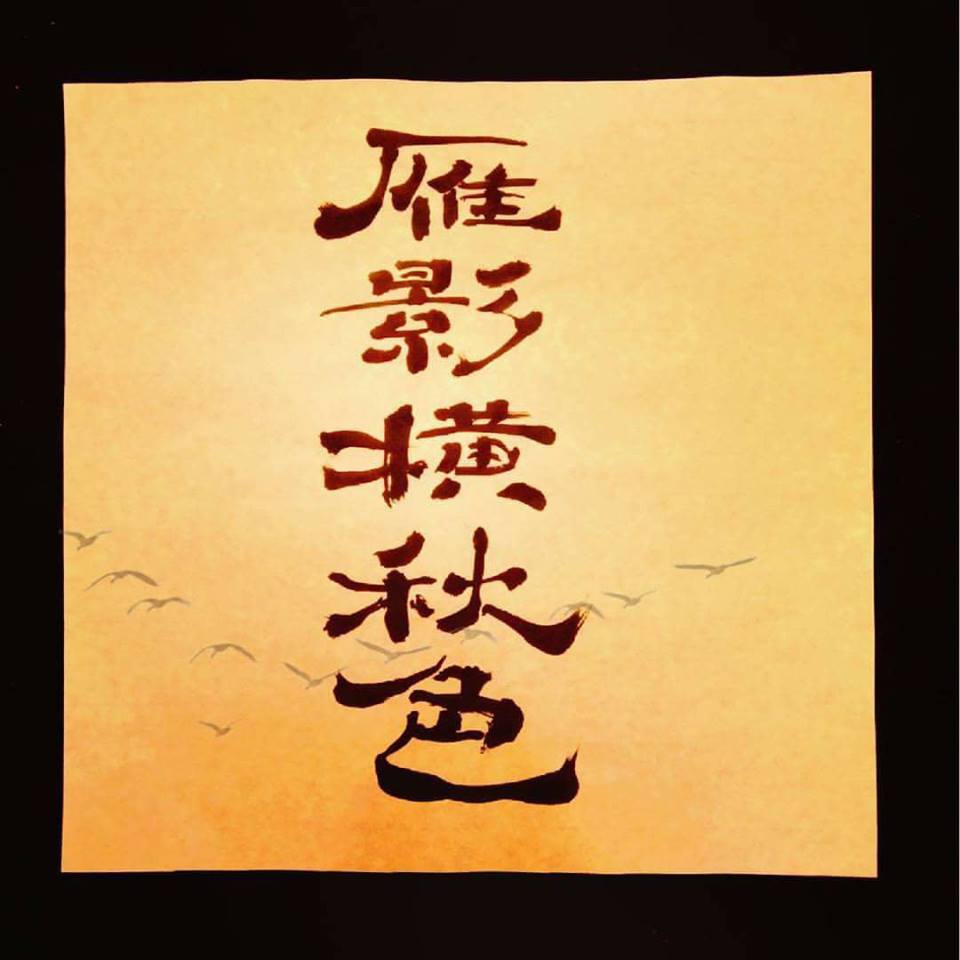 雁影横秋色